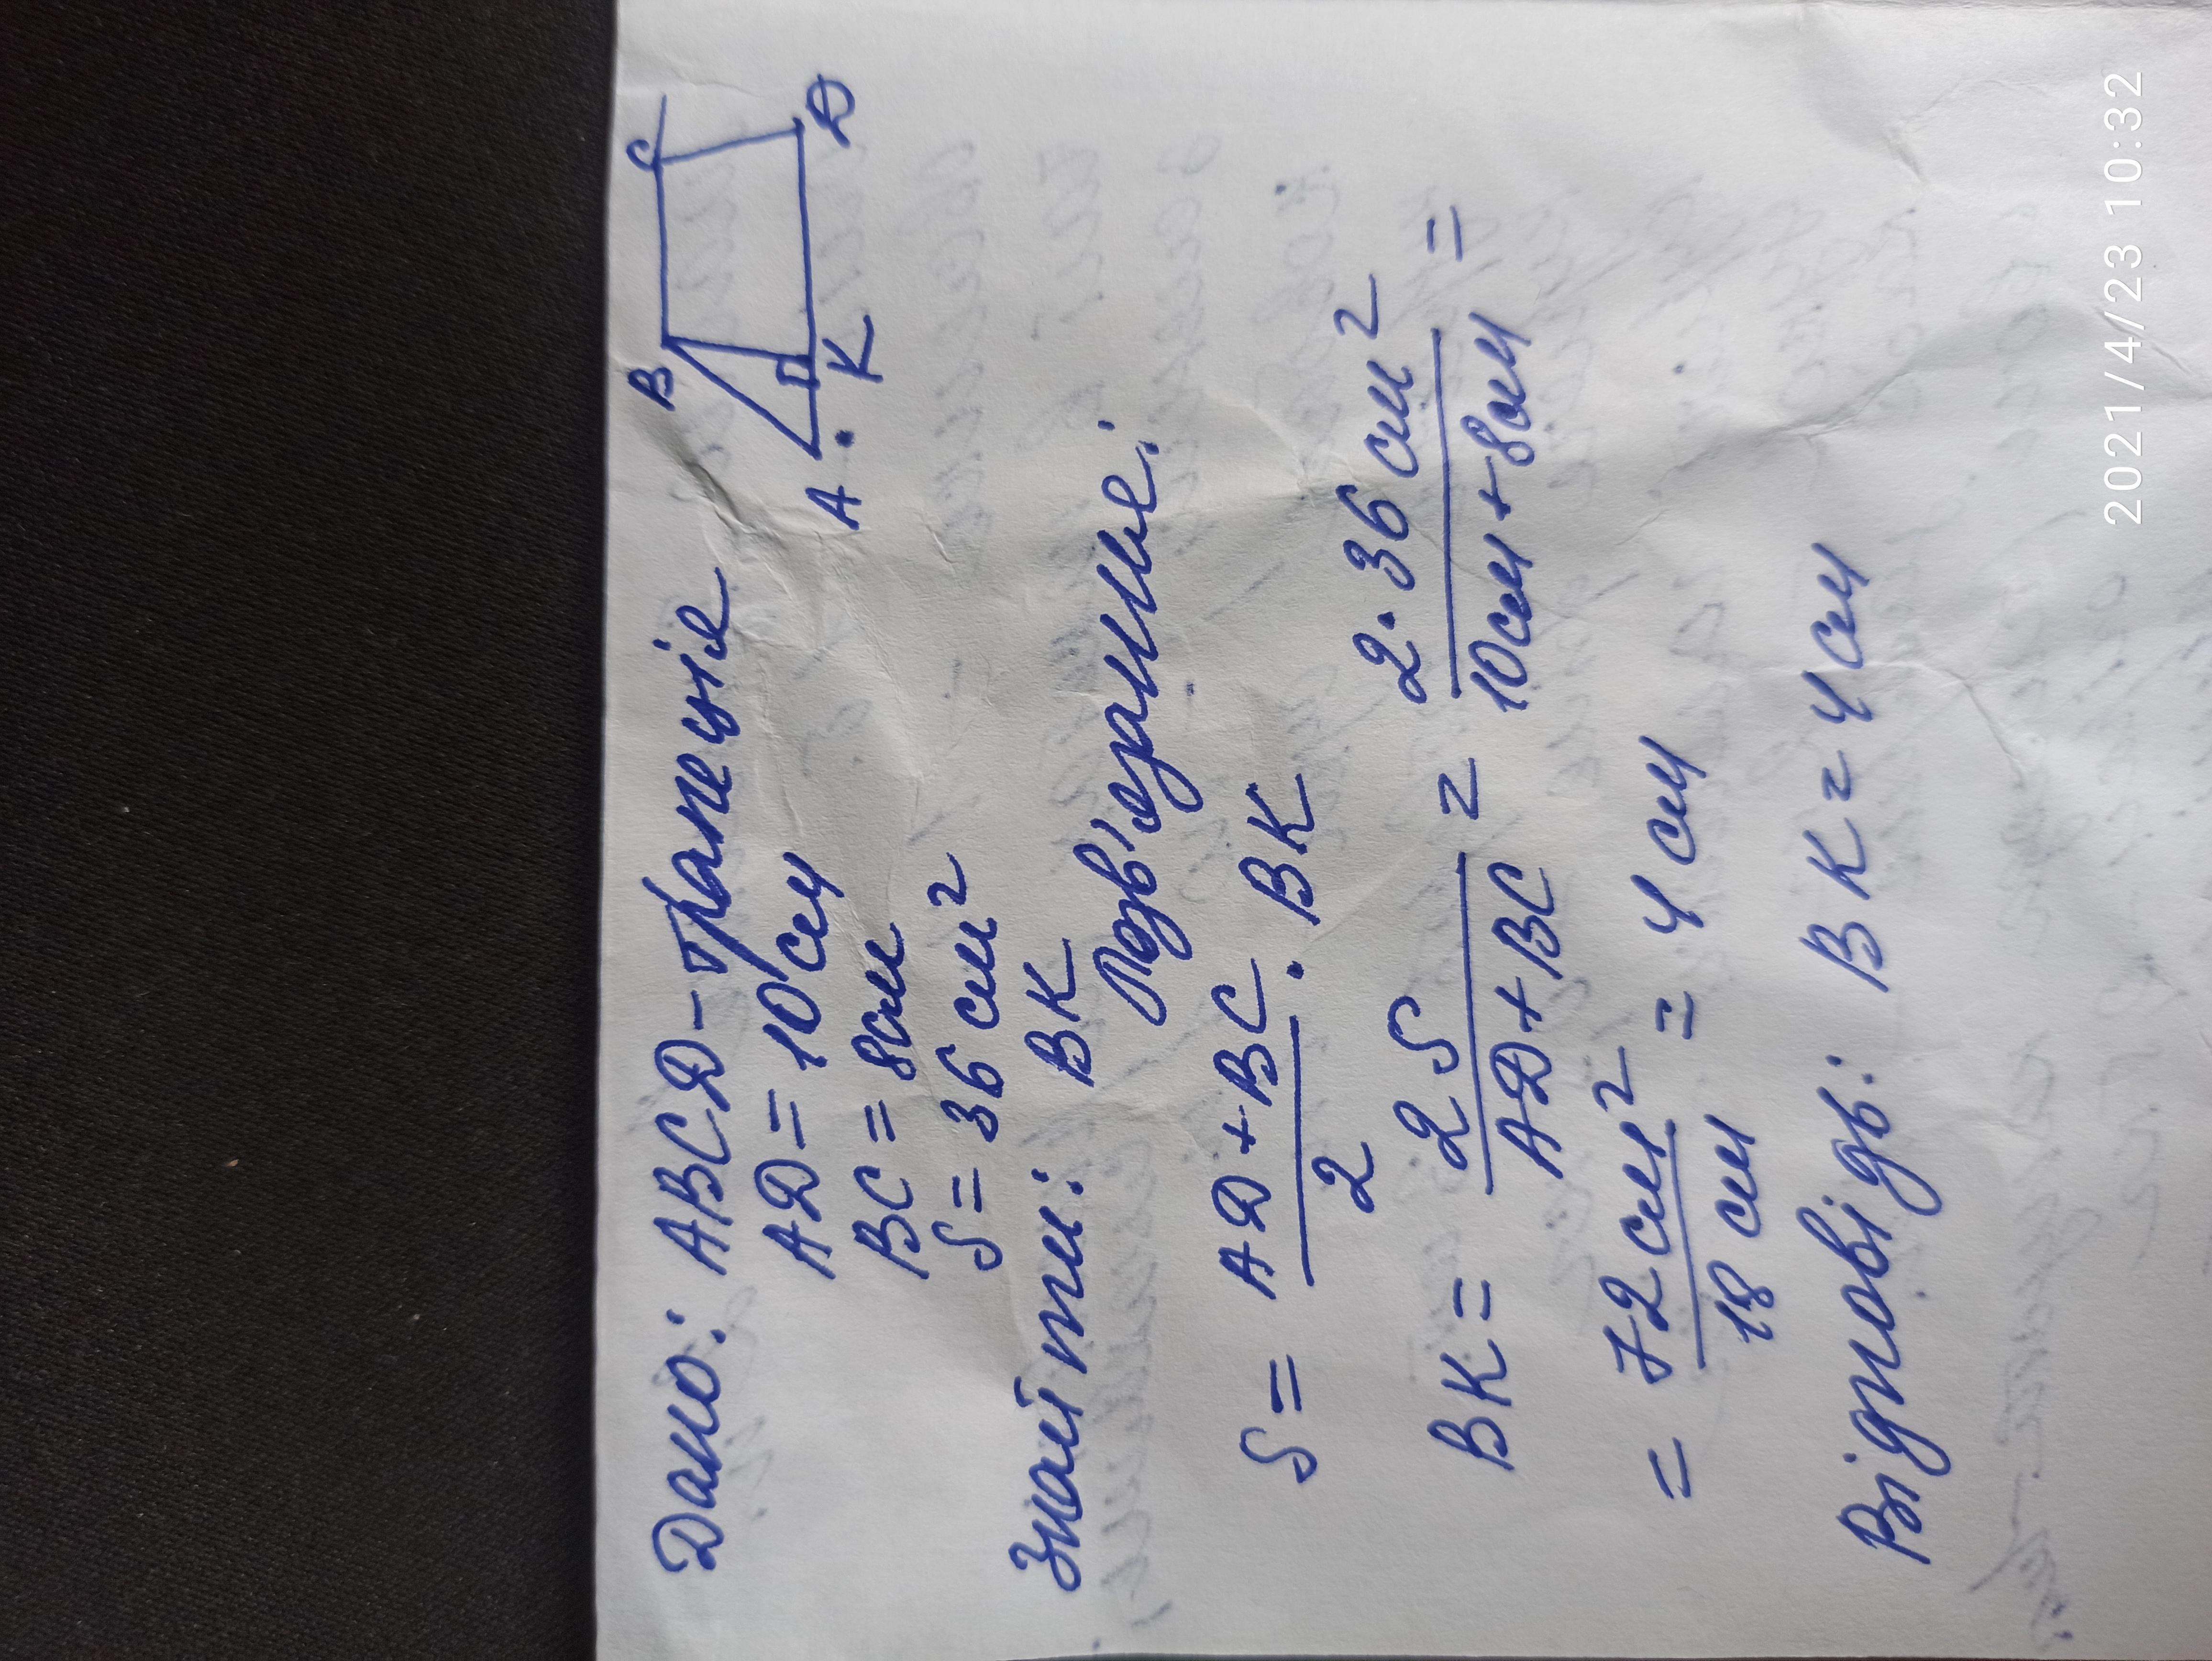 Дано: ABCD-трапеція
B C
A K D
AD = 10 см
BC = 8 см
S = 36 см²
Знайти: BK
Розв'язання:
S = AD + BC / 2 · BK
BK = 2S / AD + BC = 2 · 36 см² / 10 см + 8 см =
= 72 см² / 18 см = 4 см
Відповідь: BK = 4 см
2021/4/23 10:32